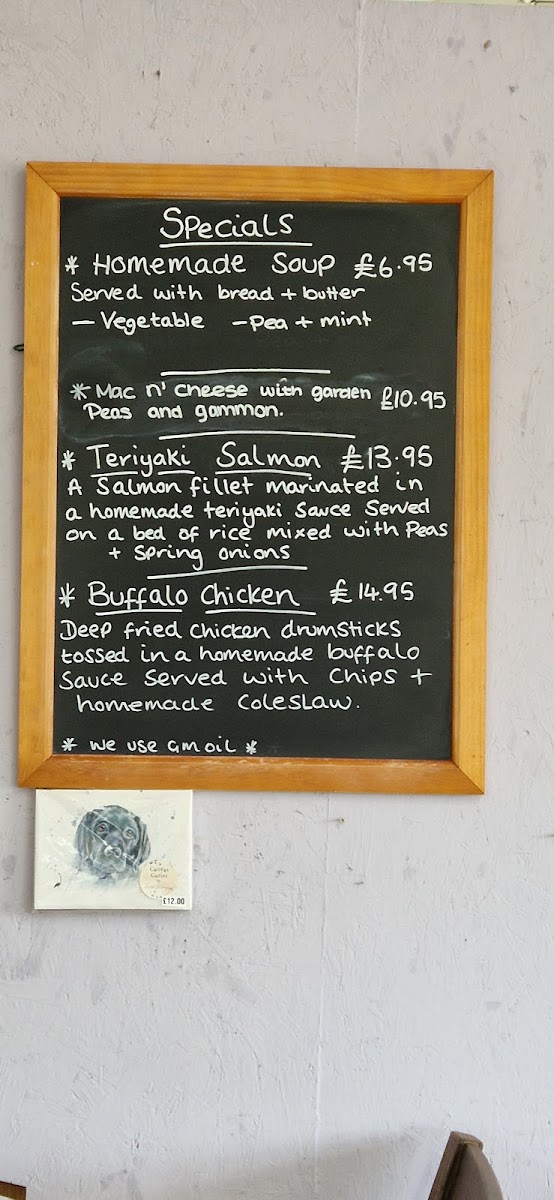 Specials
* Homemade Soup £6.95
Served with bread + butter
- Vegetable - Pea + mint
* Mac n' Cheese with garden £10.95
Peas and gammon.
* Teriyaki Salmon £13.95
A Salmon fillet marinated in
a homemade teriyaki Sauce Served
on a bed of rice mixed with Peas
+ Spring onions
* Buffalo Chicken £14.95
Deep fried chicken drumsticks
tossed in a homemade buffalo
Sauce Served with Chips +
homemade Coleslaw.
* We use GM oil *
£12.00